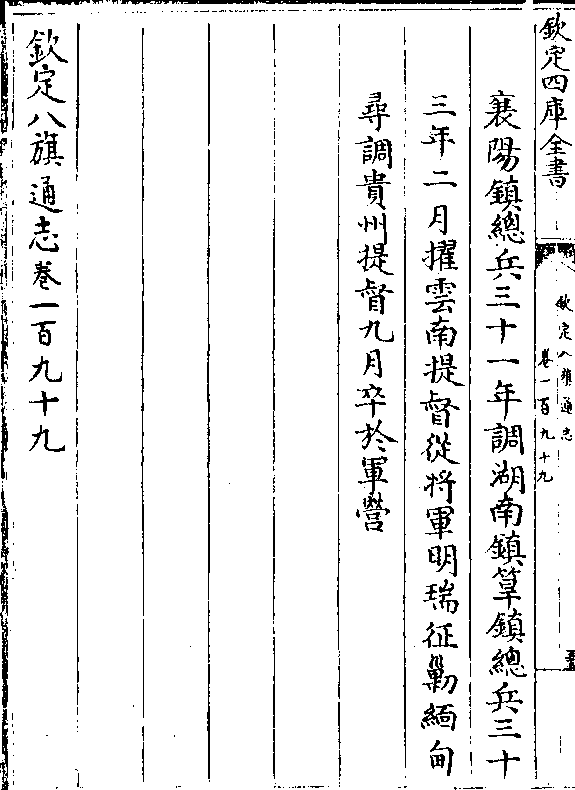 欽定四庫全書
欽定八旗通志
卷一百九十九
襄陽鎮總兵三十一年調湖南鎮筸鎮總兵三十
三年二月擢雲南提督從將軍明瑞征勦緬甸
尋調貴州提督九月卒於軍營
欽定八旗通志卷一百九十九